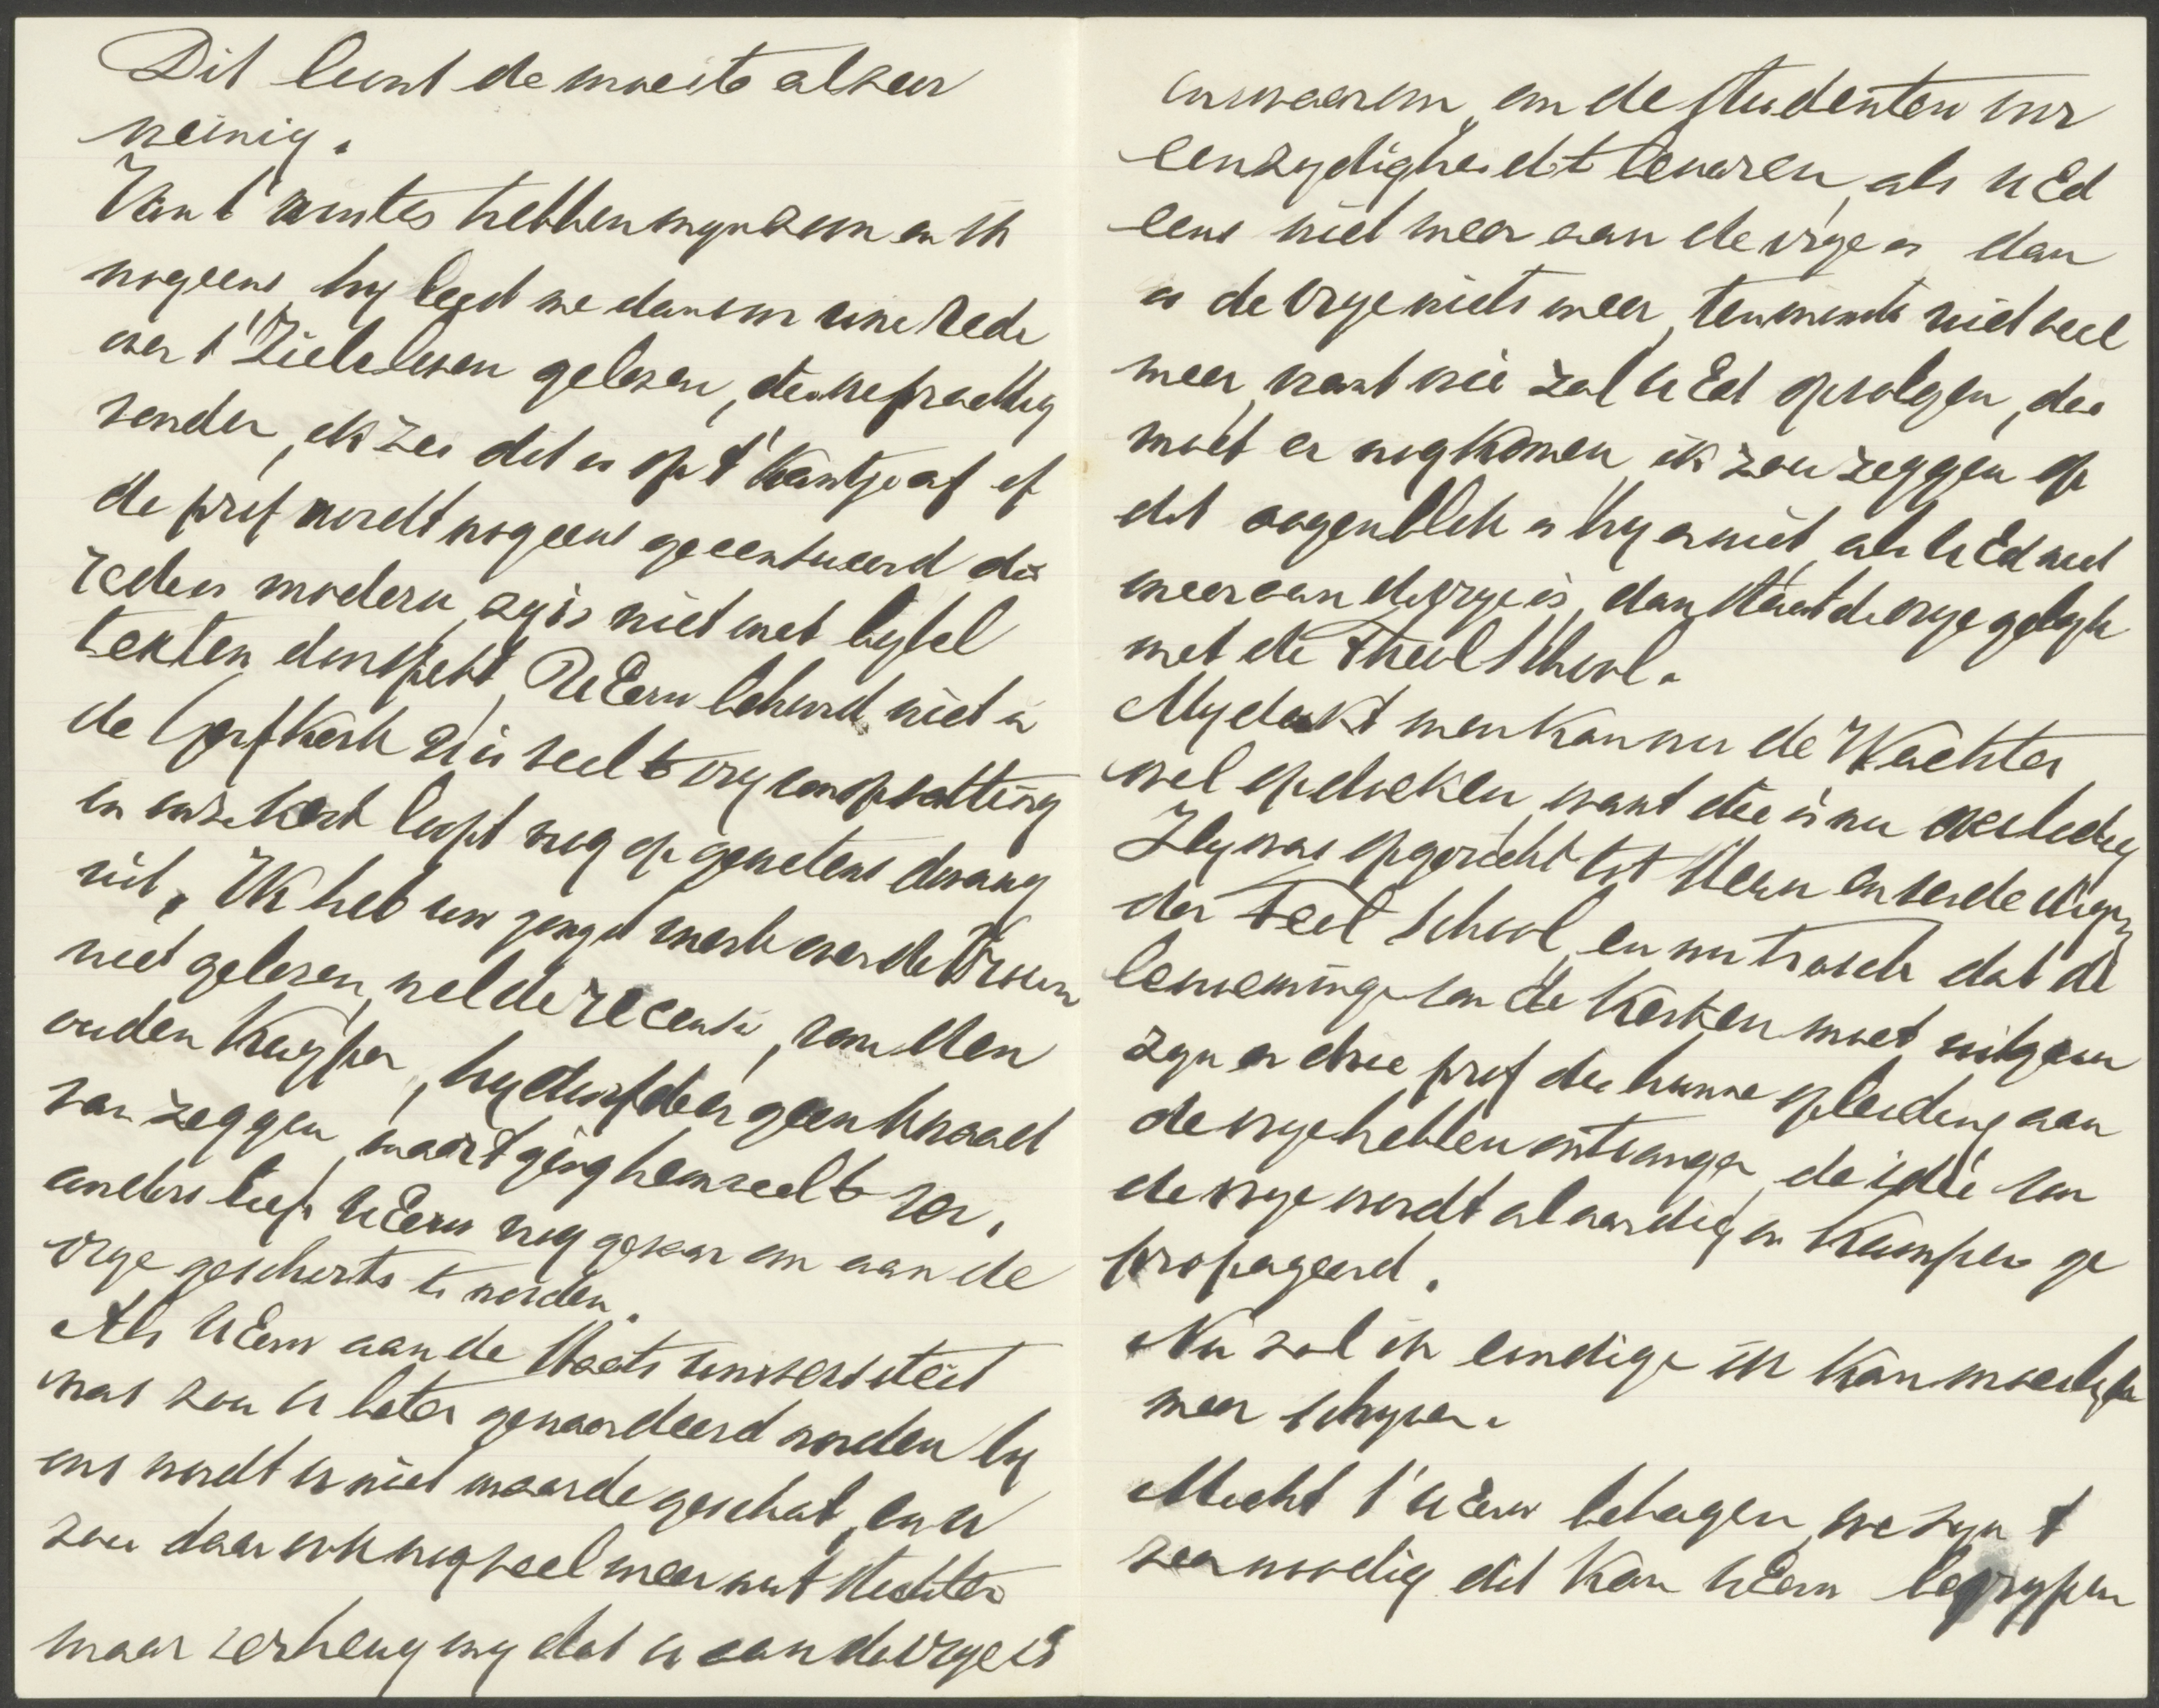 Dit loont de moeite al zeer
weinig.
Van t' winter hebben myn zoon en ik
nogeens, hy leest me dan voor uwe rede
over t' Zieleleven gelezen, die we prachtig
vonden, ik zei dit is op t' kantje af of
de prof wordt nogeens gecensureerd die
rede is modern, zy is niet met bybel
teksten doorspekt, UEerw behoord niet in
de Geref Kerk U is veel te vry van opvatting
en onze kerk loopt nog op gewetens dwang
uit. Ik heb uw jongst werk over de Vrouw
niet gelezen, wel de recensie, van den
ouden Kuyper, hy durfde er geen kwaad
van zeggen, maar t ging hem veel te ver,
anders liep UEerw nog gevaar om aan de
vrye geschorts te worden.
Als UEerw aan de Staats universiteit
was zou U beter gewaardeerd worden by
ons wordt U niet waarde geschat, en U
zou daar ook nog veel meer nut stichten
maar verheug my dat U aan de vrye is
en waarom, om de studenten voor
eenzydigheid t bewaren, als UEd
eens niet meer aan de vrye is dan
is de vrye niets meer, tenminste niet veel
meer, want wie zal UEd opvolgen, die
moet er nog komen, ik zou zeggen op
dit oogenblik is hy er niet, als UEd niet
meer aan de vrye is, dan staat de vrye gelyk
met de Theol School.
My dunkt men kan nu de Wachter
wel opdoeken, want die is nu overbodig
Zy was opgericht tot steun en verdediging
der Teol School, en nu trots dat de
benoeming van de Kerken moet uitgaan
zyn er drie prof die hunne opleiding aan
de vrye hebben ontvangen, de idée van
de vrye wordt al aardig in Kampen ge
propageerd.
Nu zal ik eindige ik kan moeielyk
meer schryven.
Mocht t' UEerw behagen, we zyn t
zeer noodig dit kan UEerw begrypen